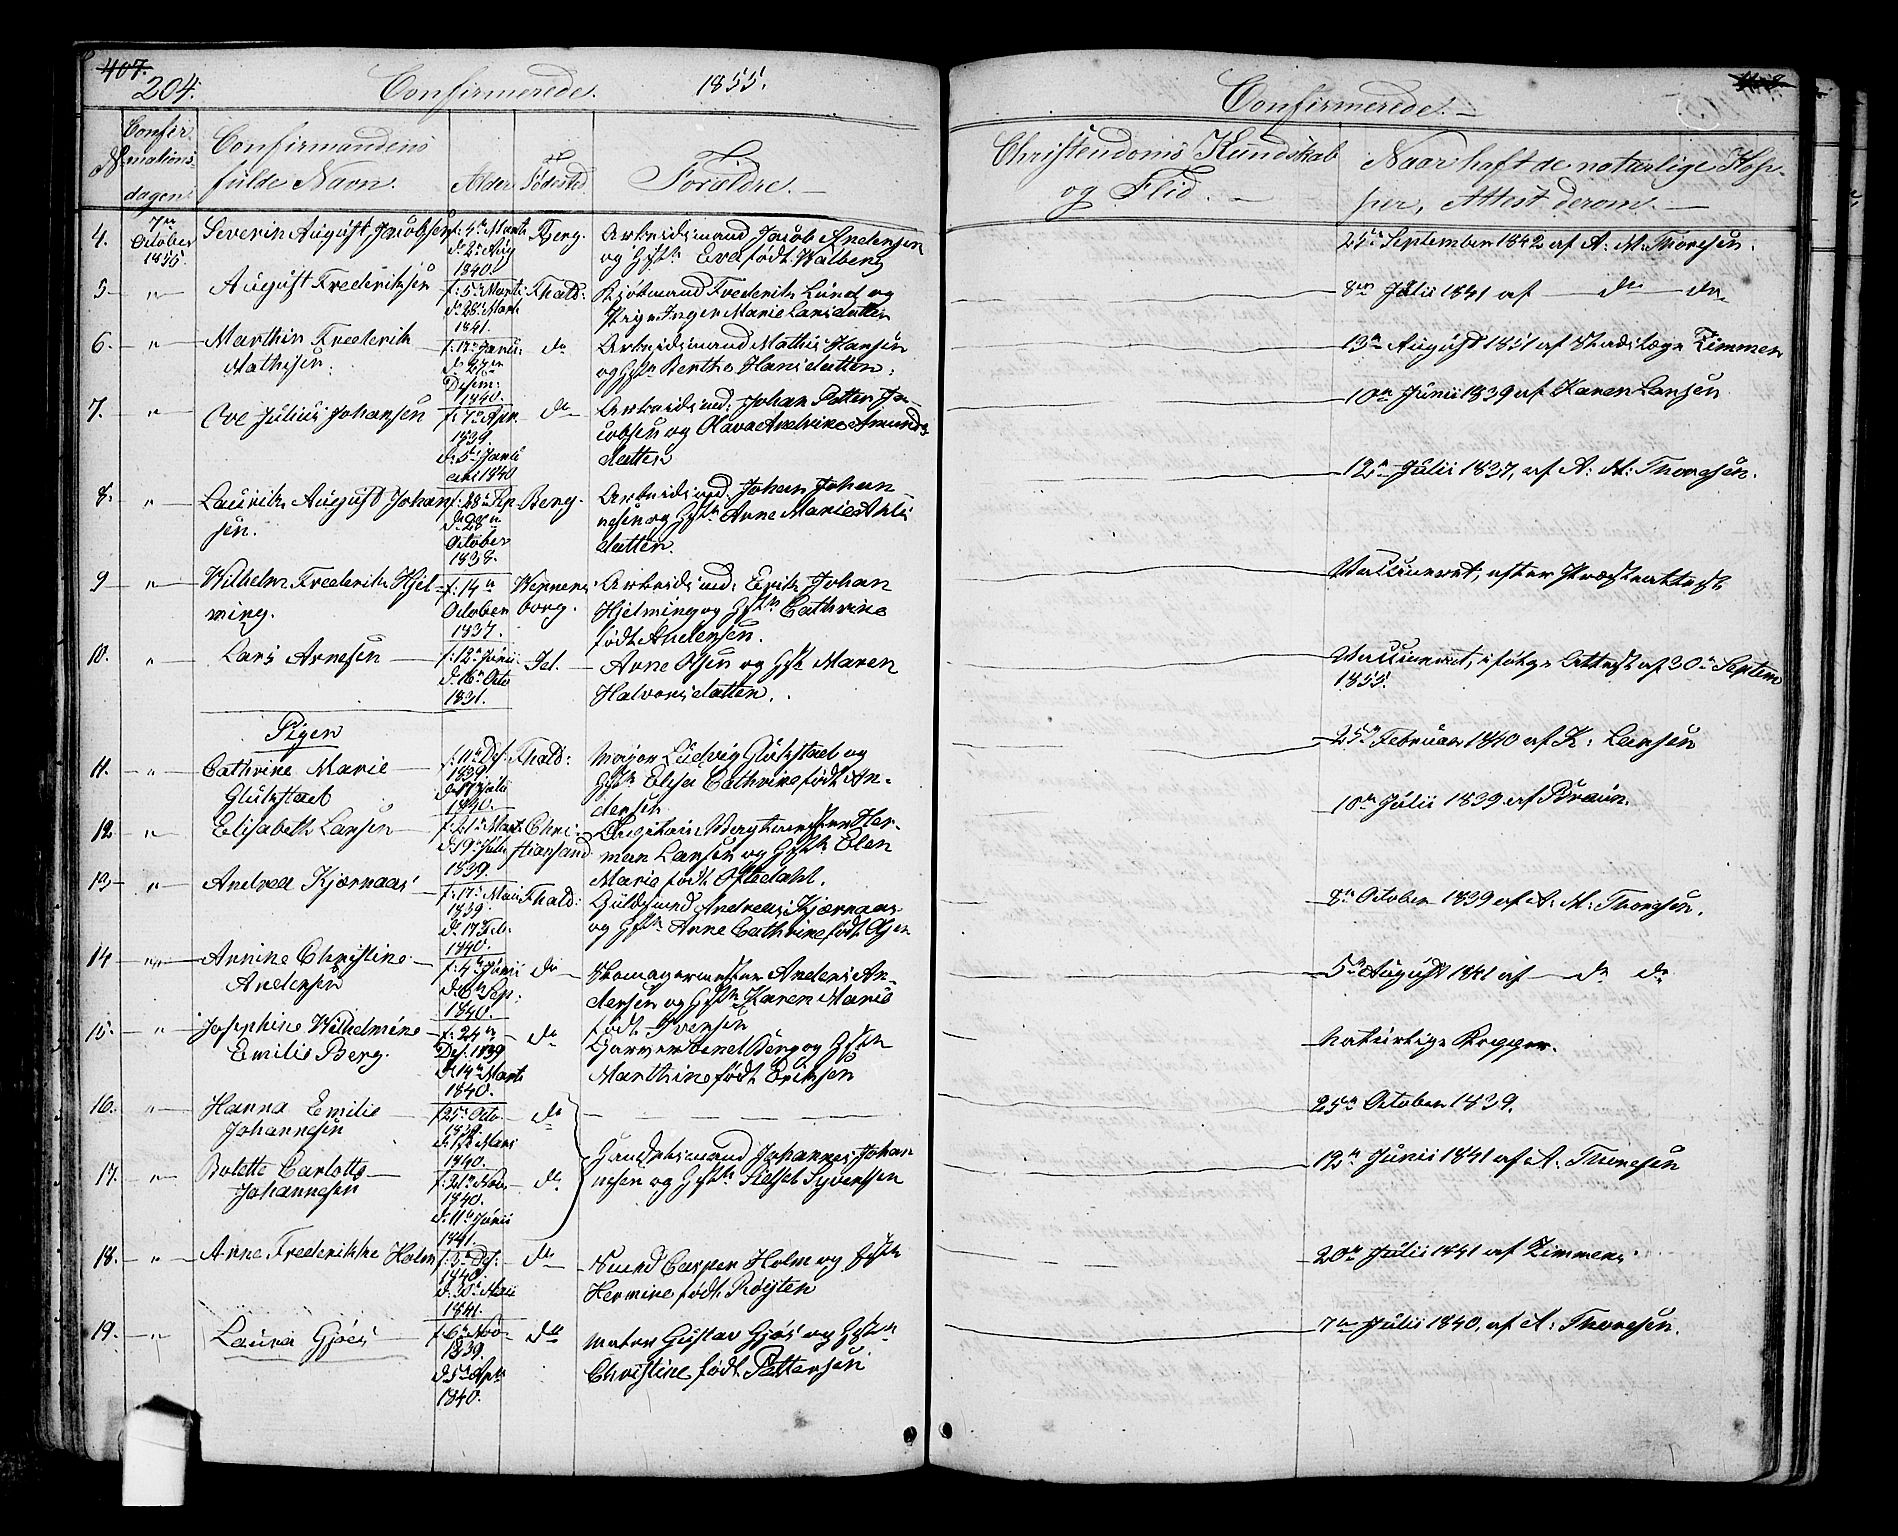 407.
204.
Confirmerede. 1855.
Confirmerede.
No
Confirmationsdagen
Confirmandens fulde Navn.
Alder
Fødested
Forældre.
Christendoms Kundskab og Flid.
Naar haft de naturlige Kopper, Attest derom.
4. 7de October 1855.
Severin August Jacobsen
f: 4de Marts
d. 2de Aug
1840.
Berg.
Arbeidsmand Jacob Andersen
og Hstr Eva født Walberg
25de September 1842 af A: M: Thoresen.
5 — " —
August Frederiksen
f: 5te Marti
d. 28de Marti
1841.
Fhald:
Kjøbmand Frederik Lund og
Pige Inger Marie Larsdatter
8de Julii 1841 af — do — do
6. "
Marthin Frederik
Mathisen.
d. 27de
Desem:
1840.
do
Arbeidsmand Mathis Hansen
og Hstr Berthe Hansdatter.
13de August 1851 af Stadslæge Zimmer
7. "
Ove Julius Johansen
f: 7de Apr.
1839.
d. 5te Janu
ar 1840
do
Arbeidsmd: Johan Petter Ja-
cobsen og Olava Andrine Amunds
datter
10de Junii 1839 af Karen Larsen
8. "
Laurits August Johan
sen.
f: 28de Sep
d. 28de
October
1838.
Berg.
Arbeidsmd. Johan Johan
nesen og Hstr Anne Marie
datter.
12te Julii 1837, af A: M: Thoresen.
9 — " —
Wilhelm Frederik Hjel-
ming.
f: 14de
October
1837.
Wenners
borg.
Arbeidsmd: Erik Johan
Hjelming og Hstr Cathrine
født Andersen.
Vaccineret, efter Præsteattest
10. "
Lars Arnesen
f: 12te Junii
d. 16de Octo
1831.
Id.
Arne Olsen og Hst Maren
Halvorsdatter.
Vaccineret, ifølge Attest af 30de Septem
1855.
Piger
11. — " —
Cathrine Marie
Glükstad
f: 11te Des.
1839.
1840.
Fhald:
Major Ludvig Glükstad og
Hstr Elisa Cathrine født An-
dersen
25de Februar 1840 af K: Larsen
12. "
Elisabeth Larsen
f: 21de Marts
d. 19de Julii
1839.
Chri-
stiansand
Herman Larsen og Hstr Elen
Marie født Oftedahl.
10de Julii 1839 af Braun.
13 — " —
Andrea Kjærnaas
f: 17de Maii
1839
d. 17 Feb.
1840.
Fhald:
Guldsmed Andreas Kjærnaas
og Hstr Anne Cathrine født Olsen
8de October 1839 af A: M: Thoresen.
14 — " —
Annine Christine
Andersen
f: 4de Junii
d. 6te Sep:
1840.
do
Skomagermester Anders An-
dersen og Hstr Karen Marie
født Iversen
5te August 1841 af — do do
15. — "
Josephine Wilhelmine
Emilie Berg.
f: 24de
Des. 1839
d. 14de Marts
1840.
do
Garver Berg og Hstr
Marthine født Eriksen
Naturlige Kopper.
16. — " —
Hanna Emilie
Johannesen
f 25de Octo
1839.
d. 12 Mars
1840.
do
25de October 1839.
17. — " —
Bolette Carlotta
Johannesen
f: 21de Nov.
1840.
d. 11te Junii
1841.
do
Handelsmand Johannes Johan
nesen og Hstr Sidsel Syversen
12te Junii 1841 af A: Thoresen
18. — " —
Anne Frederikke Holm
f: 3de Des:
1840.
1841.
do
Casper Holm og Hstr
Hermine født Røysten
20de Julii 1841 af Zimmer
19. — " —
Laura Gjøes
f. 6te Nov
1839.
d. 5te Apr
1840.
do
Maler Gustav Gjøs og Hstr
Christine født Pettersen
7de Julii 1840, af A: Thoresen.